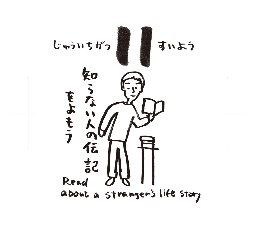 じゅういちがつ 11 すいよう
知らない人の伝記
をよもう
Read
about a stranger's life story